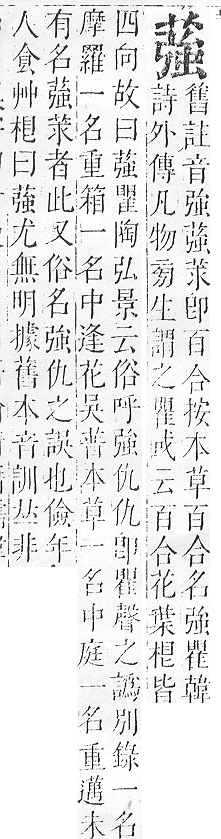 蔃
舊註音強蔃莍即百合按本草百合名強瞿韓
詩外傳凡物旁生謂之瞿或云百合花葉根皆
四向故曰蔃瞿陶弘景云俗呼強仇仇即瞿聲之譌別錄一名
摩羅一名重箱一名中逢花吳普本草一名中庭一名重邁未
有名蔃莍者此又俗名強仇之誤也儉年
人食艸根曰蔃尤無明據舊本音訓𠀤非